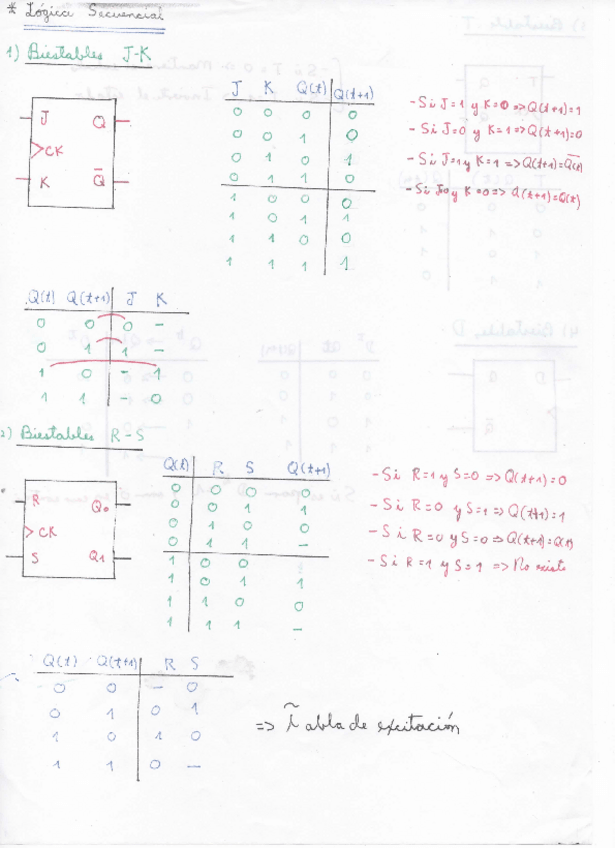 * Lógica Secuencial
1) Biestables J-K
J Q
CK
K Q̅
J K Q(t) Q(t+1)
0 0 0 0
0 0 1 0
0 1 0 1
0 1 1 0
1 0 0 0
1 0 1 1
1 1 0 0
1 1 1 1
- Si J=1 y K=0 => Q(t+1)=1
- Si J=0 y K=1 => Q(t+1)=0
- Si J=1 y K=1 => Q(t+1)=Q̅(t)
- Si J=0 y K=0 => Q(t+1)=Q(t)
Q(t) Q(t+1) J K
0 0 0 -
0 1 1 -
1 0 - 1
1 1 - 0
2) Biestables R-S
R Q0
CK
S Q1
Q(t) R S Q(t+1)
0 0 0 0
0 0 1 1
0 1 0 0
0 1 1 -
1 0 0
1 0 1 1
1 1 0 0
1 1 1 -
- Si R=1 y S=0 => Q(t+1)=0
- Si R=0 y S=1 => Q(t+1)=1
- Si R=0 y S=0 => Q(t+1)=Q(t)
- Si R=1 y S=1 => No existe
Q(t) Q(t+1) R S
0 0 - 0
0 1 0 1
1 0 1 0
1 1 0 -
=> Tabla de excitación